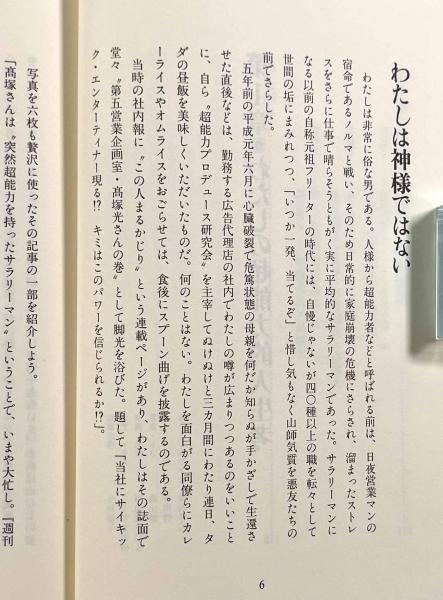 わたしは神様ではない
わたしは非常に俗な男である。人様から超能力者などと呼ばれる前は、日夜営業マンの
宿命であるノルマと戦い、そのため日常的に家庭崩壊の危機にさらされ、溜まったストレ
スをさらに仕事で晴らそうともがく実に平均的なサラリーマンであった。サラリーマンに
なる以前の自称元祖フリーターの時代には、自慢じゃないが四〇種以上の職を転々として
世間の垢にまみれつつ、「いつか一発、当てるぞ」と惜し気もなく山師気質を悪友たちの
前でさらした。
五年前の平成元年六月に心臓破裂で危篤状態の母親を何だか知らぬが手かざしで生還さ
せた直後などは、勤務する広告代理店の社内でわたしの噂が広まりつつあるのをいいこと
に、自ら〝超能力プロデュース研究会〟を主宰してぬけぬけと三カ月間にわたり連日、タ
ダの昼飯を美味しくいただいたものだ。何のことはない。わたしを面白がる同僚らにカレ
ーライスやオムライスをおごらせては、食後にスプーン曲げを披露するのである。
当時の社内報に〝この人まるかじり〟という連載ページがあり、わたしはその誌面で
堂々〝第五営業企画室・髙塚光さんの巻〟として脚光を浴びた。題して「当社にサイキッ
ク・エンターティナー現る!? キミはこのパワーを信じられるか!?」。
写真を六枚も贅沢に使ったその記事の一部を紹介しよう。
「髙塚さんは〝突然超能力を持ったサラリーマン〟ということで、いまや大忙し。『週刊
6